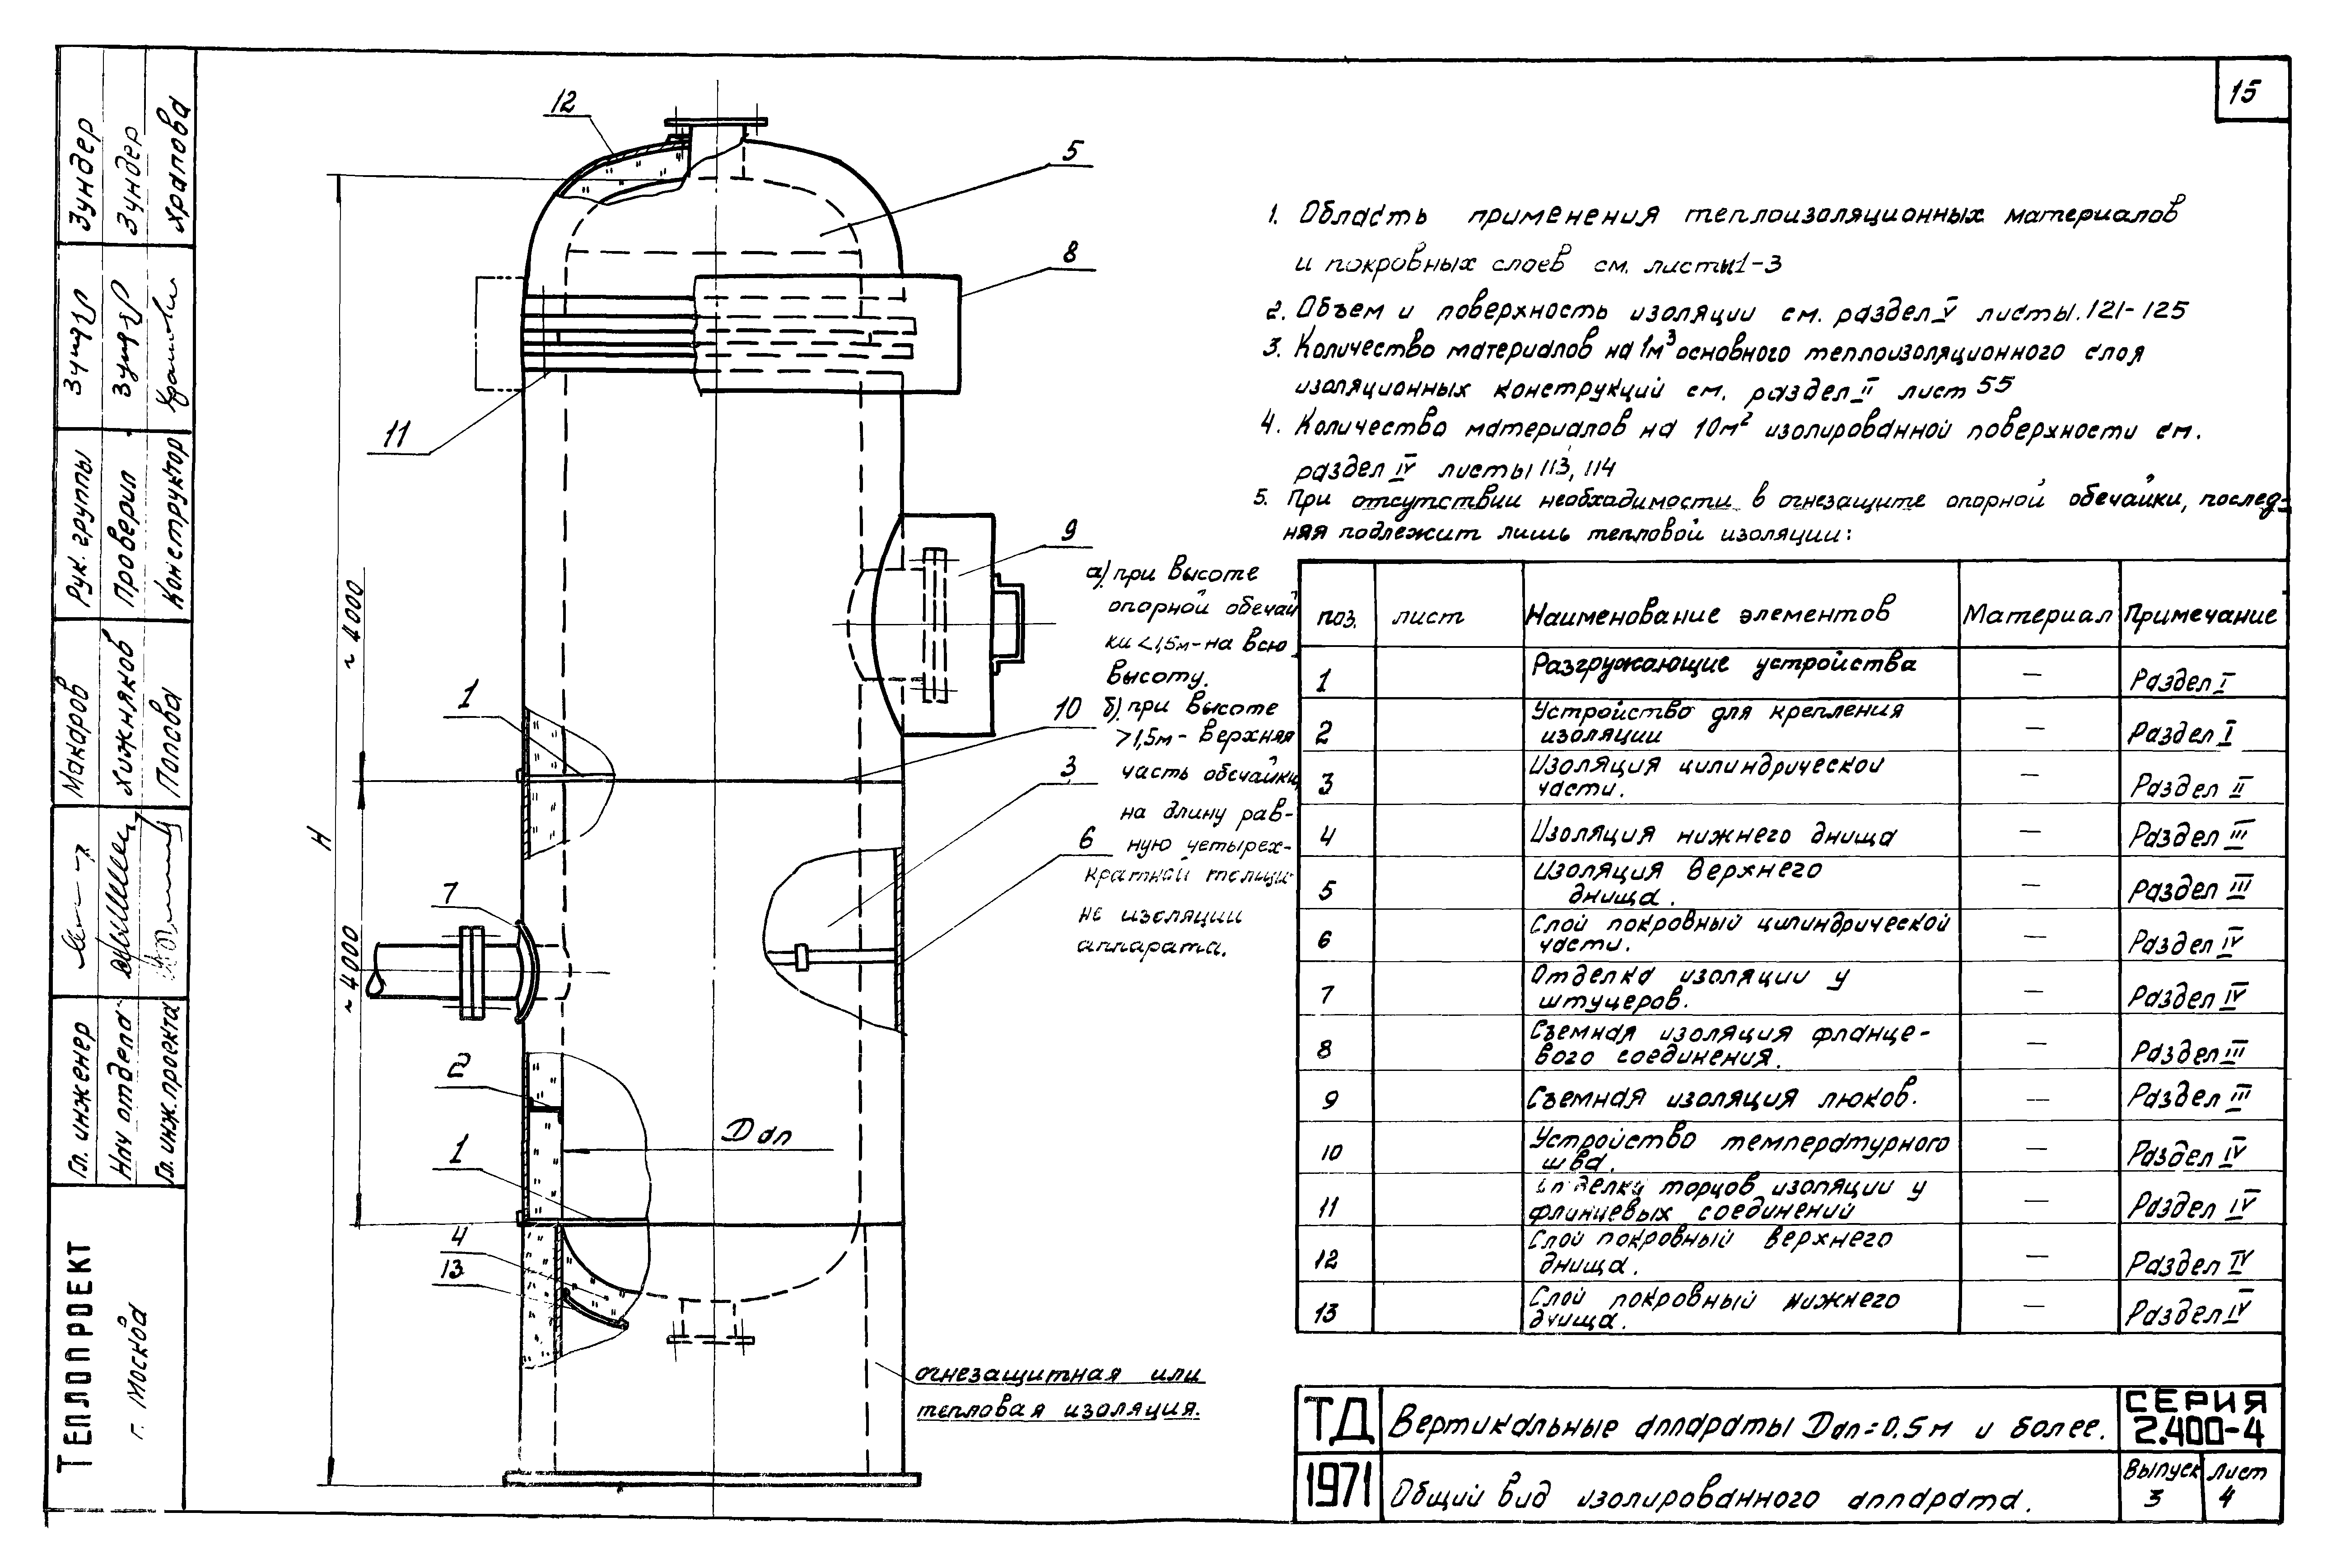 15
1. Область применения теплоизоляционных материалов
и покровных слоев см. листы 1-3
2. Объем и поверхность изоляции см. раздел V листы. 121-125
3. Количество материалов на 1м³ основного теплоизоляционного слоя
изоляционных конструкций см. раздел II лист 55
4. Количество материалов на 10м² изолированной поверхности см.
раздел IV листы 113, 114
5. При отсутствии необходимости в огнезащите опорной обечайки, послед-
няя подлежит лишь тепловой изоляции:
а) при высоте
опорной обечай
ки <1,5м-на всю
высоту.
б) при высоте
>1,5м- верхняя
часть обечайки,
на длину рав-
ную четырех-
кратной толщи-
не изоляции
аппарата.
12
5
8
11
9
1
10
3
6
7
2
1
4
13
H
~ 4000
~ 4000
Dап
огнезащитная или
тепловая изоляция.
поз. лист Наименование элементов Материал Примечание
1 Разгружающие устройства — Раздел I
2 Устройство для крепления
изоляции — Раздел I
3 Изоляция цилиндрической
части. — Раздел II
4 Изоляция нижнего днища — Раздел III
5 Изоляция верхнего
днища. — Раздел III
6 Слой покровный цилиндрической
части. — Раздел IV
7 Отделка изоляции у
штуцеров. — Раздел IV
8 Съемная изоляция фланце-
вого соединения. — Раздел III
9 Съемная изоляция люков. — Раздел III
10 Устройство температурного
шва. — Раздел IV
11 Отделка торцов изоляции у
фланцевых соединений — Раздел IV
12 Слой покровный верхнего
днища. — Раздел IV
13 Слой покровный нижнего
днища. — Раздел IV
ТД Вертикальные аппараты Dап=0.5м и более. СЕРИЯ
2.400-4
1971 Общий вид изолированного аппарата. Выпуск 3 Лист 4
ТЕПЛОПРОЕКТ
г. Москва
Гл. инженер Макаров
Нач отдела Хижняков
Гл. инж. проекта Попова
Рук. группы Зундер
Проверил Зундер
Конструктор Храпова